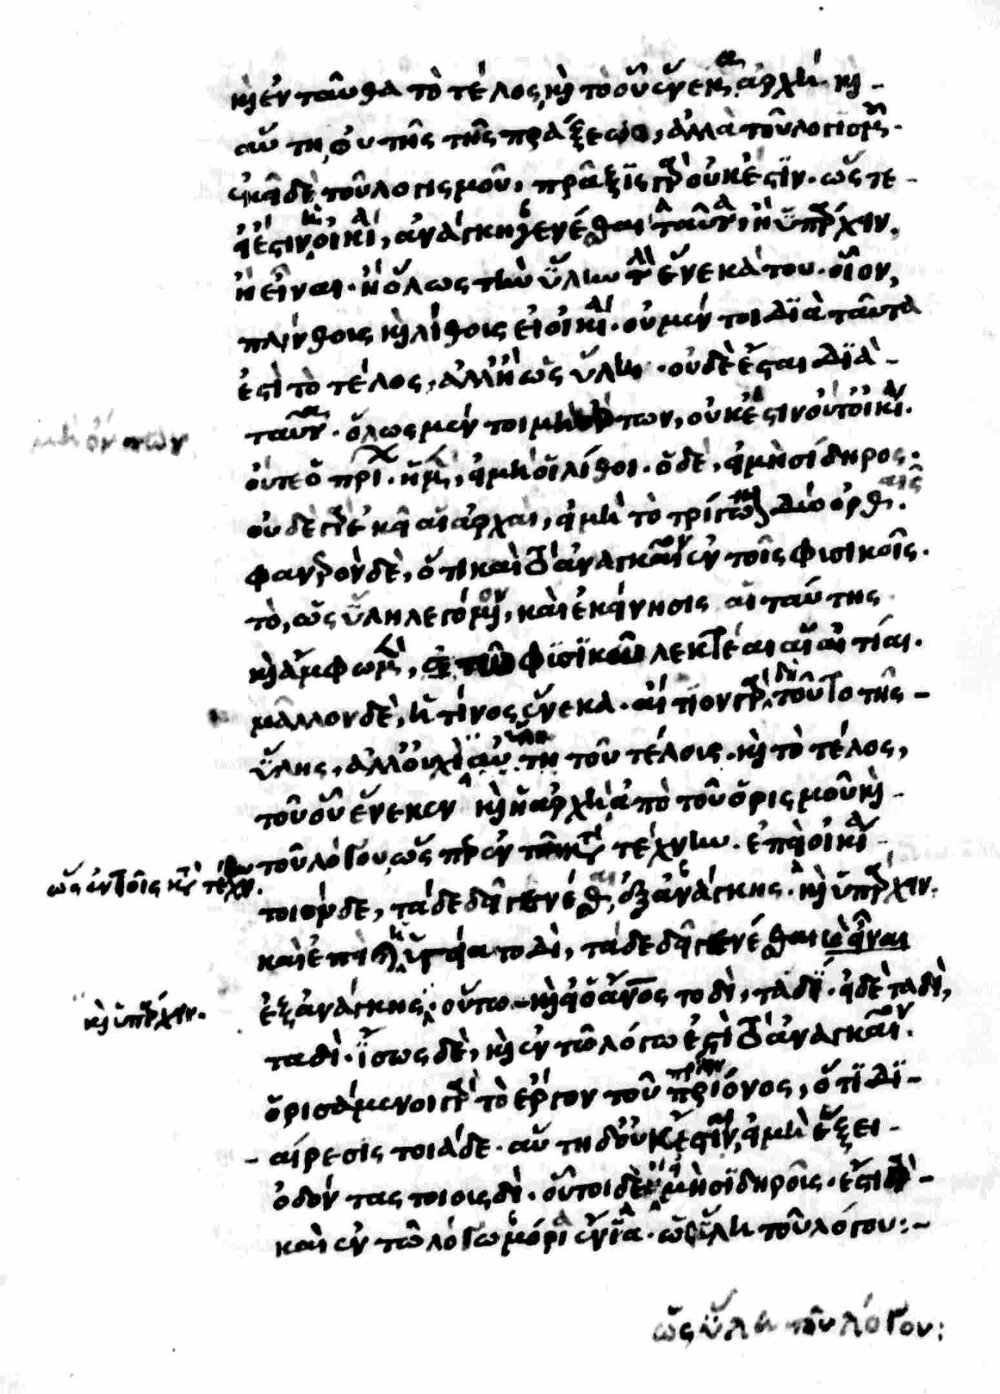 κὶ ἐνταῦθα τὸ τέλος, κὶ τὸ οὗ ἕνεκα, ἀρχὴ κὶ -
αὕτη, οὐ τῆς τῆς πράξεως, ἀλλὰ τοῦ λογισμοῦ.
ἐκεῖ δὲ τοῦ λογισμοῦ, πρᾶξις γὰρ οὐκ ἔστιν. ὥστε -
εἰ ἔστιν ἡ οἰκία, ἀνάγκη γενέσθαι ταῦτα, ἢ ὑπάρχειν,
ἢ εἶναι. ἢ ὅλως τὴν ὕλην τὴν ἕνεκά του. οἷον,
πλίνθοις κὶ λίθοις εἰ οἰκία. οὐ μέντοι διὰ ταῦτα
ἐστὶ τὸ τέλος, ἀλλ' ἢ ὡς ὕλη. οὐδὲ ἔσται διὰ -
ταῦτα. ὅλως μέντοι μὴ ὄντων, οὐκ ἔστιν οὔτ οἰκία.
μὴ ὄντων
οὔτε ὁ πρίων. ἡ μὲν, εἰ μὴ οἱ λίθοι. ὁ δὲ, εἰ μὴ σίδηρος.
οὐδὲ γὰρ ἐκεῖ αἱ ἀρχαὶ, εἰ μὴ τὸ τρίγωνον δύο ὀρθαῖς.
φανερὸν δὲ, ὅτι καὶ τὸ ἀναγκαῖον ἐν τοῖς φισικοῖς.
τὸ, ὡς ὕλη λεγόμενον, καὶ ἐκείνησις αἱ ταύτης
κὶ ἄμφω μὲν, τῶ φισϊκοῦ λεκτέαι αἱ αἰτίαι.
μᾶλλον δὲ, ἡ τίνος ἕνεκα. αἴτιον γὰρ δὴ τοῦτο τῆς -
ὕλης, ἀλλ' οὐχὶ αὕτη τοῦ τέλοις. κὶ τὸ τέλος,
τοῦ οὗ ἕνεκεν κὶ ἡ ἀρχὴ ἀπὸ τοῦ ὁρισμοῦ κὶ -
τοῦ λόγου, ὥσπερ ἐν τῶ κατὰ τέχνην. ἐπεὶ οἰκία
ὡς ἐν τοῖς κατὰ τέχνην.
τοιόνδε, τάδε δεῖ γενέσθαι, ἐξ ἀνάγκης. κὶ ὑπάρχειν.
καὶ ἐπεὶ ἡ ὑγεία τοδὶ, τάδε δεῖ γενέσθαι εἶναι
ἐξ ἀνάγκης. οὕτω κὶ εἰ ὁ ἄνος τοδὶ, ταδί. εἰ δὲ ταδὶ,
κὶ ὑπάρχειν.
ταδὶ. ἴσως δὲ, κὶ ἐν τῶ λόγω ἐστὶ τὸ ἀναγκαῖον.
ὁρισάμενοι γὰρ τὸ ἔργον τοῦ πριόνος, ὅτι δϊ -
- αίρεσις τοιάδε. αὕτη δ' οὐκ ἔσται, εἰ μὴ ἕξει -
ὀδόντας τοιοισδὶ. οὗτοι δὲ, εἰ μὴ σϊδηροῖς. ἐστὶ δὲ -
καὶ ἐν τῶ λόγω μόρια ἔνϊα. ὡς ὕλη τοῦ λόγου:-
ὡς ὕλη τοῦ λόγου: